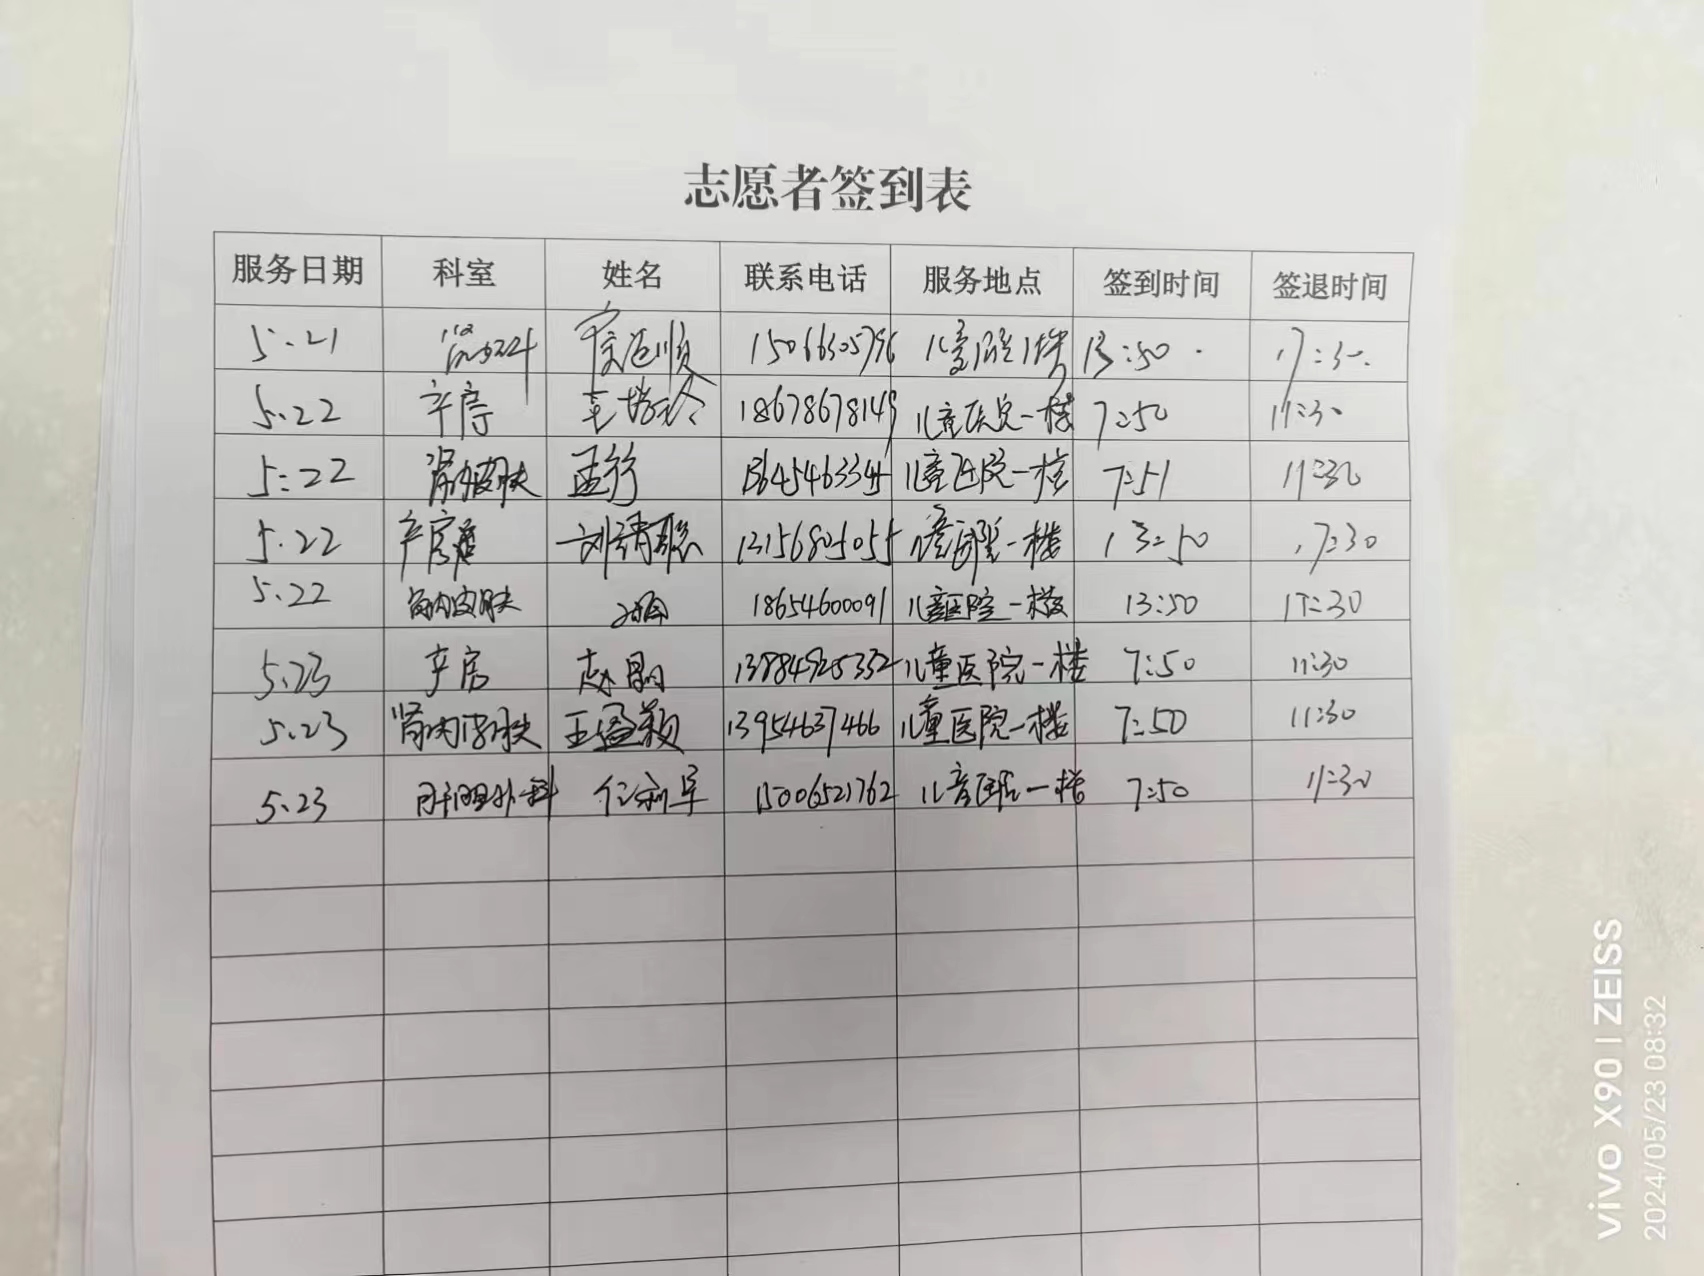 志愿者签到表
服务日期 科室 姓名 联系电话 服务地点 签到时间 签退时间
5.21 13:50 17:30
5.22 产房 18678678149 儿童医院一楼 7:50 11:30
5:22 肾内皮肤 孟行 儿童医院一楼 7:51 11:30
5.22 产房 刘靖聪 13156805055 儿童医院一楼 13:50 17:30
5.22 肾内皮肤 18654600091 儿童医院一楼 13:50 17:30
5.23 产房 赵 13884925332 儿童医院一楼 7:50 11:30
5.23 肾内皮肤 王盈颖 13954637466 儿童医院一楼 7:50 11:30
5.23 肝胆外科 15006521762 儿童医院一楼 7:50 11:30
vivo X90 | ZEISS
2024/05/23 08:32